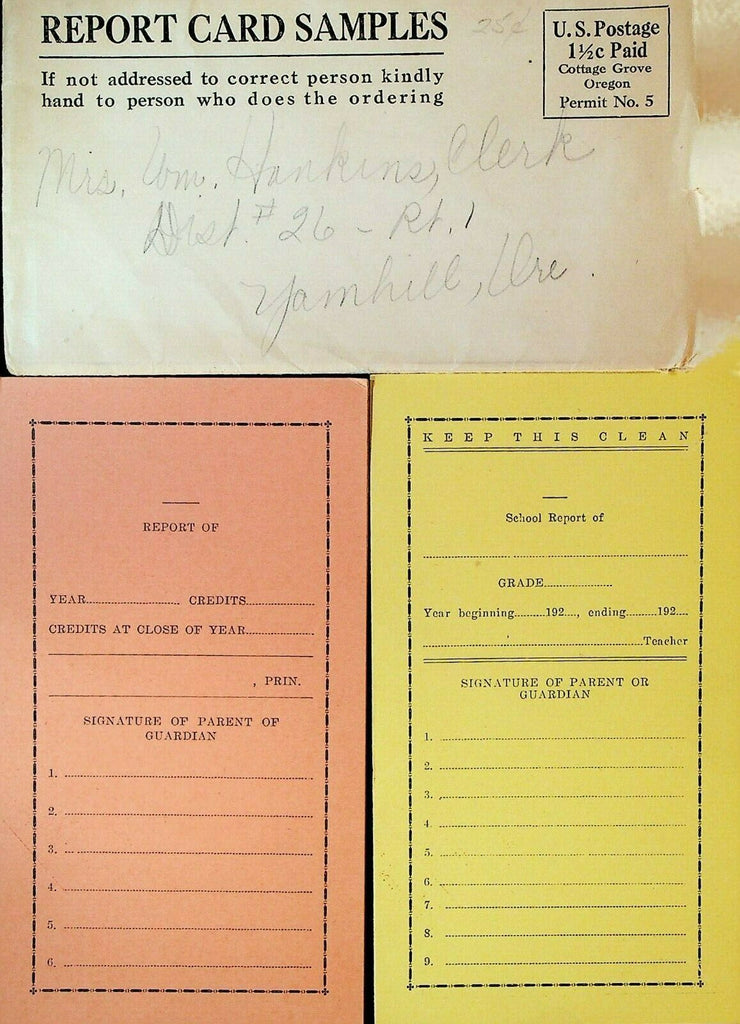 REPORT CARD SAMPLES
25¢
If not addressed to correct person kindly
hand to person who does the ordering
U.S. Postage
1½c Paid
Cottage Grove
Oregon
Permit No. 5
Mrs. Wm. Hankins, Clerk
Dist. # 26 - Rt. 1
Yamhill, Ore.
REPORT OF
YEAR.................... CREDITS..................
CREDITS AT CLOSE OF YEAR..................
, PRIN.
SIGNATURE OF PARENT OF
GUARDIAN
1.
2.
3.
4.
5.
6.
KEEP THIS CLEAN
School Report of
GRADE..................
Year beginning.........192...., ending.........192....
Teacher
SIGNATURE OF PARENT OR
GUARDIAN
1.
2.
3.
4.
5.
6.
7.
8.
9.